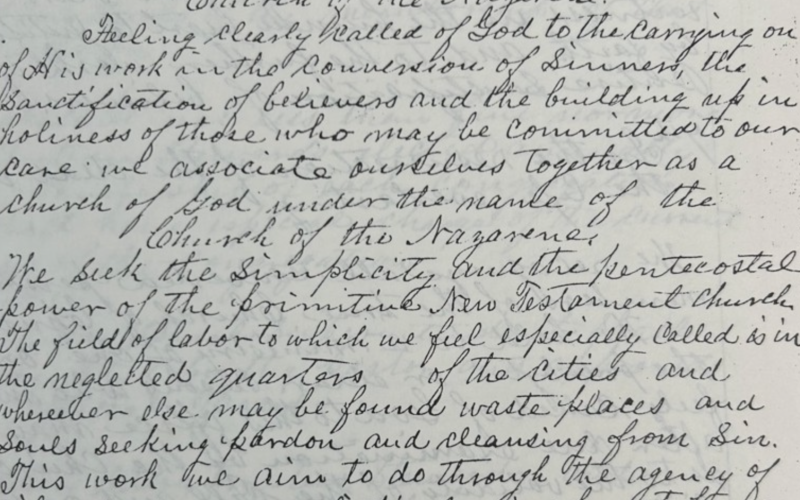 Church of the Nazarene.
Feeling clearly called of God to the carrying on
of His work in the conversion of Sinners, the
Sanctification of believers and the building up in
holiness of those who may be committed to our
care we associate ourselves together as a
church of God under the name of the
Church of the Nazarene.
We seek the Simplicity and the pentecostal
power of the primitive New Testament church.
The field of labor to which we feel especially called is in
the neglected quarters of the cities and
wherever else may be found waste places and
Souls Seeking pardon and cleansing from Sin.
This work we aim to do through the agency of